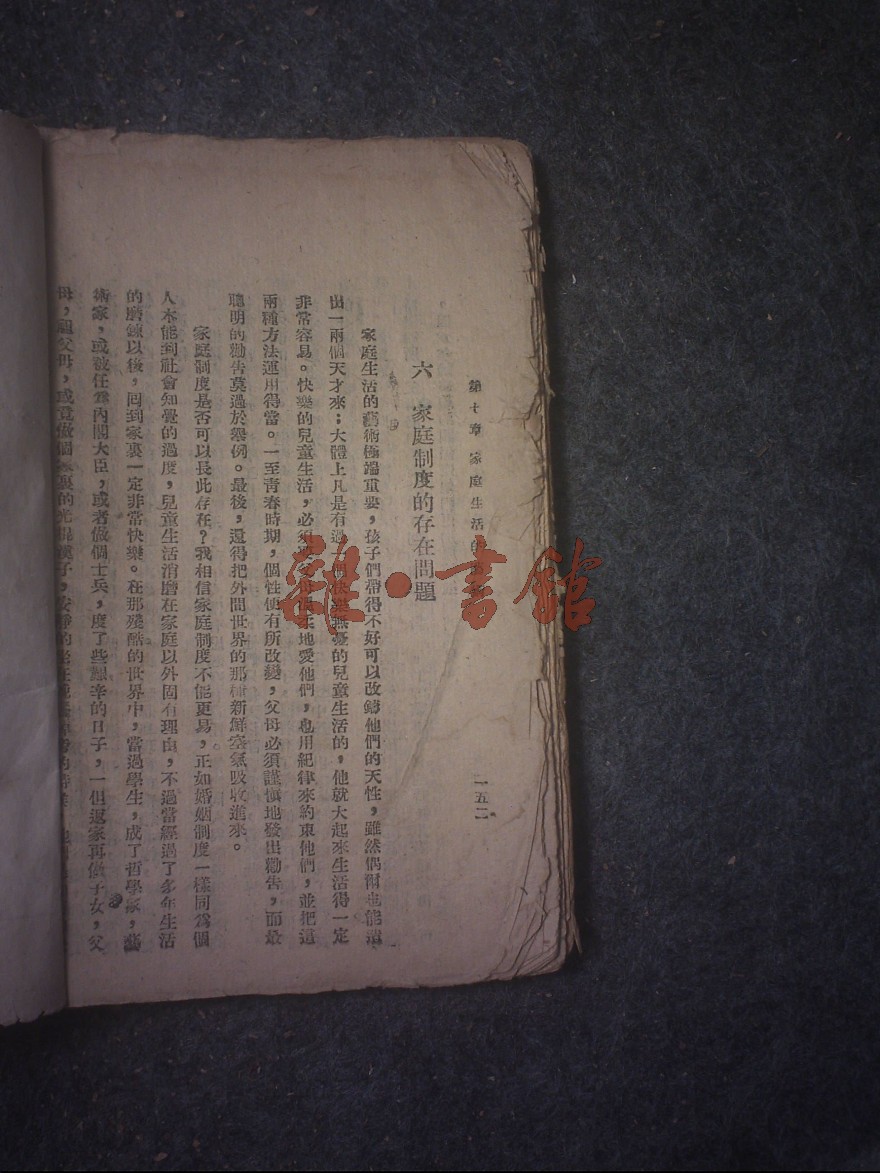 第十章 家庭生活的
一五二
六 家庭制度的存在問題
家庭生活的藝術極端重要，孩子們帶得不好可以改鑄他們的天性，雖然偶爾也能造
出一兩個天才來；大體上凡是有過一個快樂無憂的兒童生活的，他就大起來生活得一定
非常容易。快樂的兒童生活，必須要父母溫柔地愛他們，也用紀律來約束他們，並把這
兩種方法運用得當。一至青春時期，個性便有所改變，父母必須謹慎地發出勸告，而最
聰明的勸告莫過於舉例。最後，還得把外間世界的那種新鮮空氣吸收進來。
家庭制度是否可以長此存在？我相信家庭制度不能更易，正如婚姻制度一樣同爲個
人本能到社會知覺的過度，兒童生活消磨在家庭以外固有理由，不過當經過了多年生活
的磨鍊以後，回到家裏一定非常快樂。在那殘酷的世界中，當過學生，成了哲學家，藝
術家，或被任爲內閣大臣，或者做個士兵，度了些艱辛的日子，一但返家再做子女，父
母，祖父母，或竟做個家裏的光棍漢子，安靜的
雜·書館